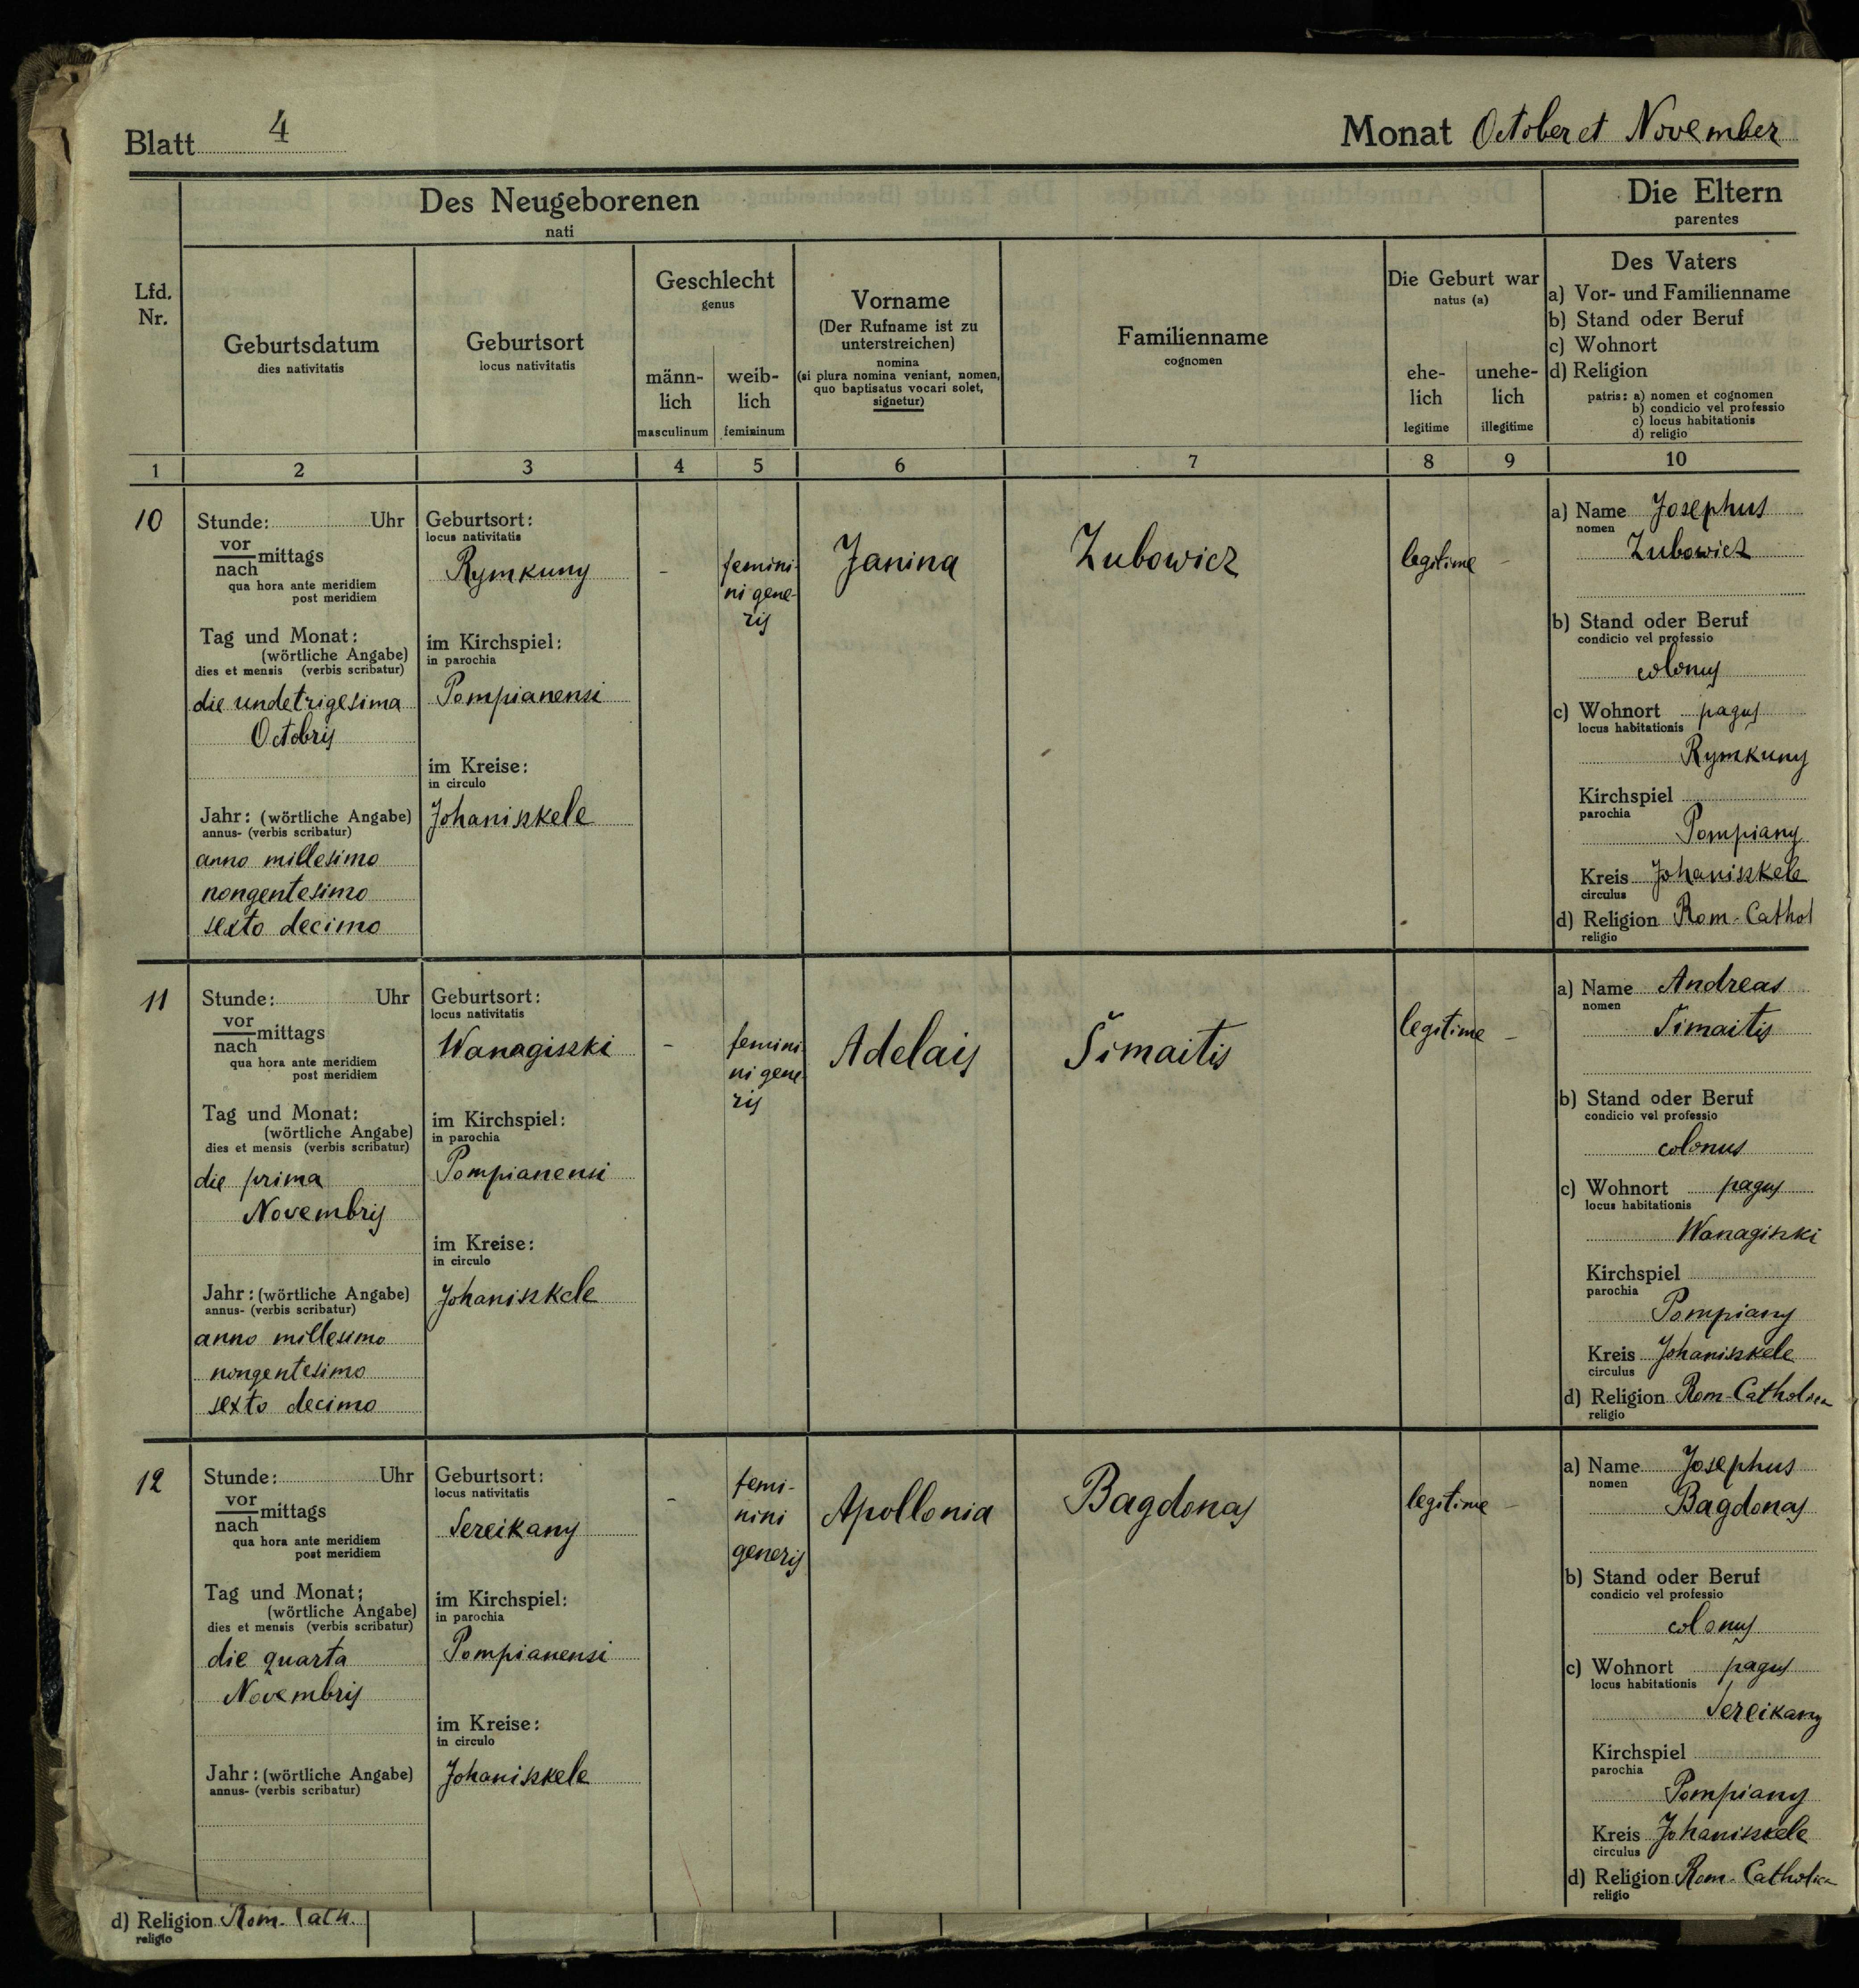 Blatt 4
Monat October et November
Des Neugeborenen
nati
Die Eltern
parentes
Lfd.
Nr.
Geburtsdatum
dies nativitatis
Geburtsort
locus nativitatis
Geschlecht
genus
männ-
lich
masculinum
weib-
lich
femininum
Vorname
(Der Rufname ist zu
unterstreichen)
nomina
(si plura nomina veniant, nomen,
quo baptisatus vocari solet,
signetur)
Familienname
cognomen
Die Geburt war
natus (a)
ehe-
lich
legitime
unehe-
lich
illegitime
Des Vaters
a) Vor- und Familienname
b) Stand oder Beruf
c) Wohnort
d) Religion
patris: a) nomen et cognomen
b) condicio vel professio
c) locus habitationis
d) religio
1 2 3 4 5 6 7 8 9 10
10
Stunde: Uhr
vor
nach mittags
qua hora ante meridiem
post meridiem
Tag und Monat:
(wörtliche Angabe)
dies et mensis (verbis scribatur)
die undetrigesima
Octobris
Jahr: (wörtliche Angabe)
annus- (verbis scribatur)
anno millesimo
nongentesimo
sexto decimo
Geburtsort:
locus nativitatis
Rymkuny
im Kirchspiel:
in parochia
Pompianensi
im Kreise:
in circulo
Johaniszkele
-
femini-
ni gene-
ris
Janina
Zubowicz
legitime
-
a) Name Josephus
nomen
Zubowicz
b) Stand oder Beruf
condicio vel professio
colonus
c) Wohnort pagus
locus habitationis
Rymkuny
Kirchspiel
parochia
Pompiany
Kreis Johaniszkele
circulus
d) Religion Rom-Cathol
religio
11
Stunde: Uhr
vor
nach mittags
qua hora ante meridiem
post meridiem
Tag und Monat:
(wörtliche Angabe)
dies et mensis (verbis scribatur)
die prima
Novembris
Jahr: (wörtliche Angabe)
annus- (verbis scribatur)
anno millesimo
nongentesimo
sexto decimo
Geburtsort:
locus nativitatis
Wanagiszki
im Kirchspiel:
in parochia
Pompianensi
im Kreise:
in circulo
Johaniszkele
-
femini-
ni gene-
ris
Adelais
Šimaitis
legitime
-
a) Name Andreas
nomen
Šimaitis
b) Stand oder Beruf
condicio vel professio
colonus
c) Wohnort pagus
locus habitationis
Wanagiszki
Kirchspiel
parochia
Pompiany
Kreis Johaniszkele
circulus
d) Religion Rom-Catholica
religio
12
Stunde: Uhr
vor
nach mittags
qua hora ante meridiem
post meridiem
Tag und Monat:
(wörtliche Angabe)
dies et mensis (verbis scribatur)
die quarta
Novembris
Jahr: (wörtliche Angabe)
annus- (verbis scribatur)
Geburtsort:
locus nativitatis
Sereikany
im Kirchspiel:
in parochia
Pompianensi
im Kreise:
in circulo
Johaniszkele
-
femi-
nini
generis
Apollonia
Bagdonas
legitime
-
a) Name Josephus
nomen
Bagdonas
b) Stand oder Beruf
condicio vel professio
colonus
c) Wohnort pagus
locus habitationis
Sereikany
Kirchspiel
parochia
Pompiany
Kreis Johaniszkele
circulus
d) Religion Rom-Catholica
religio
d) Religion Rom-Cath.
religio